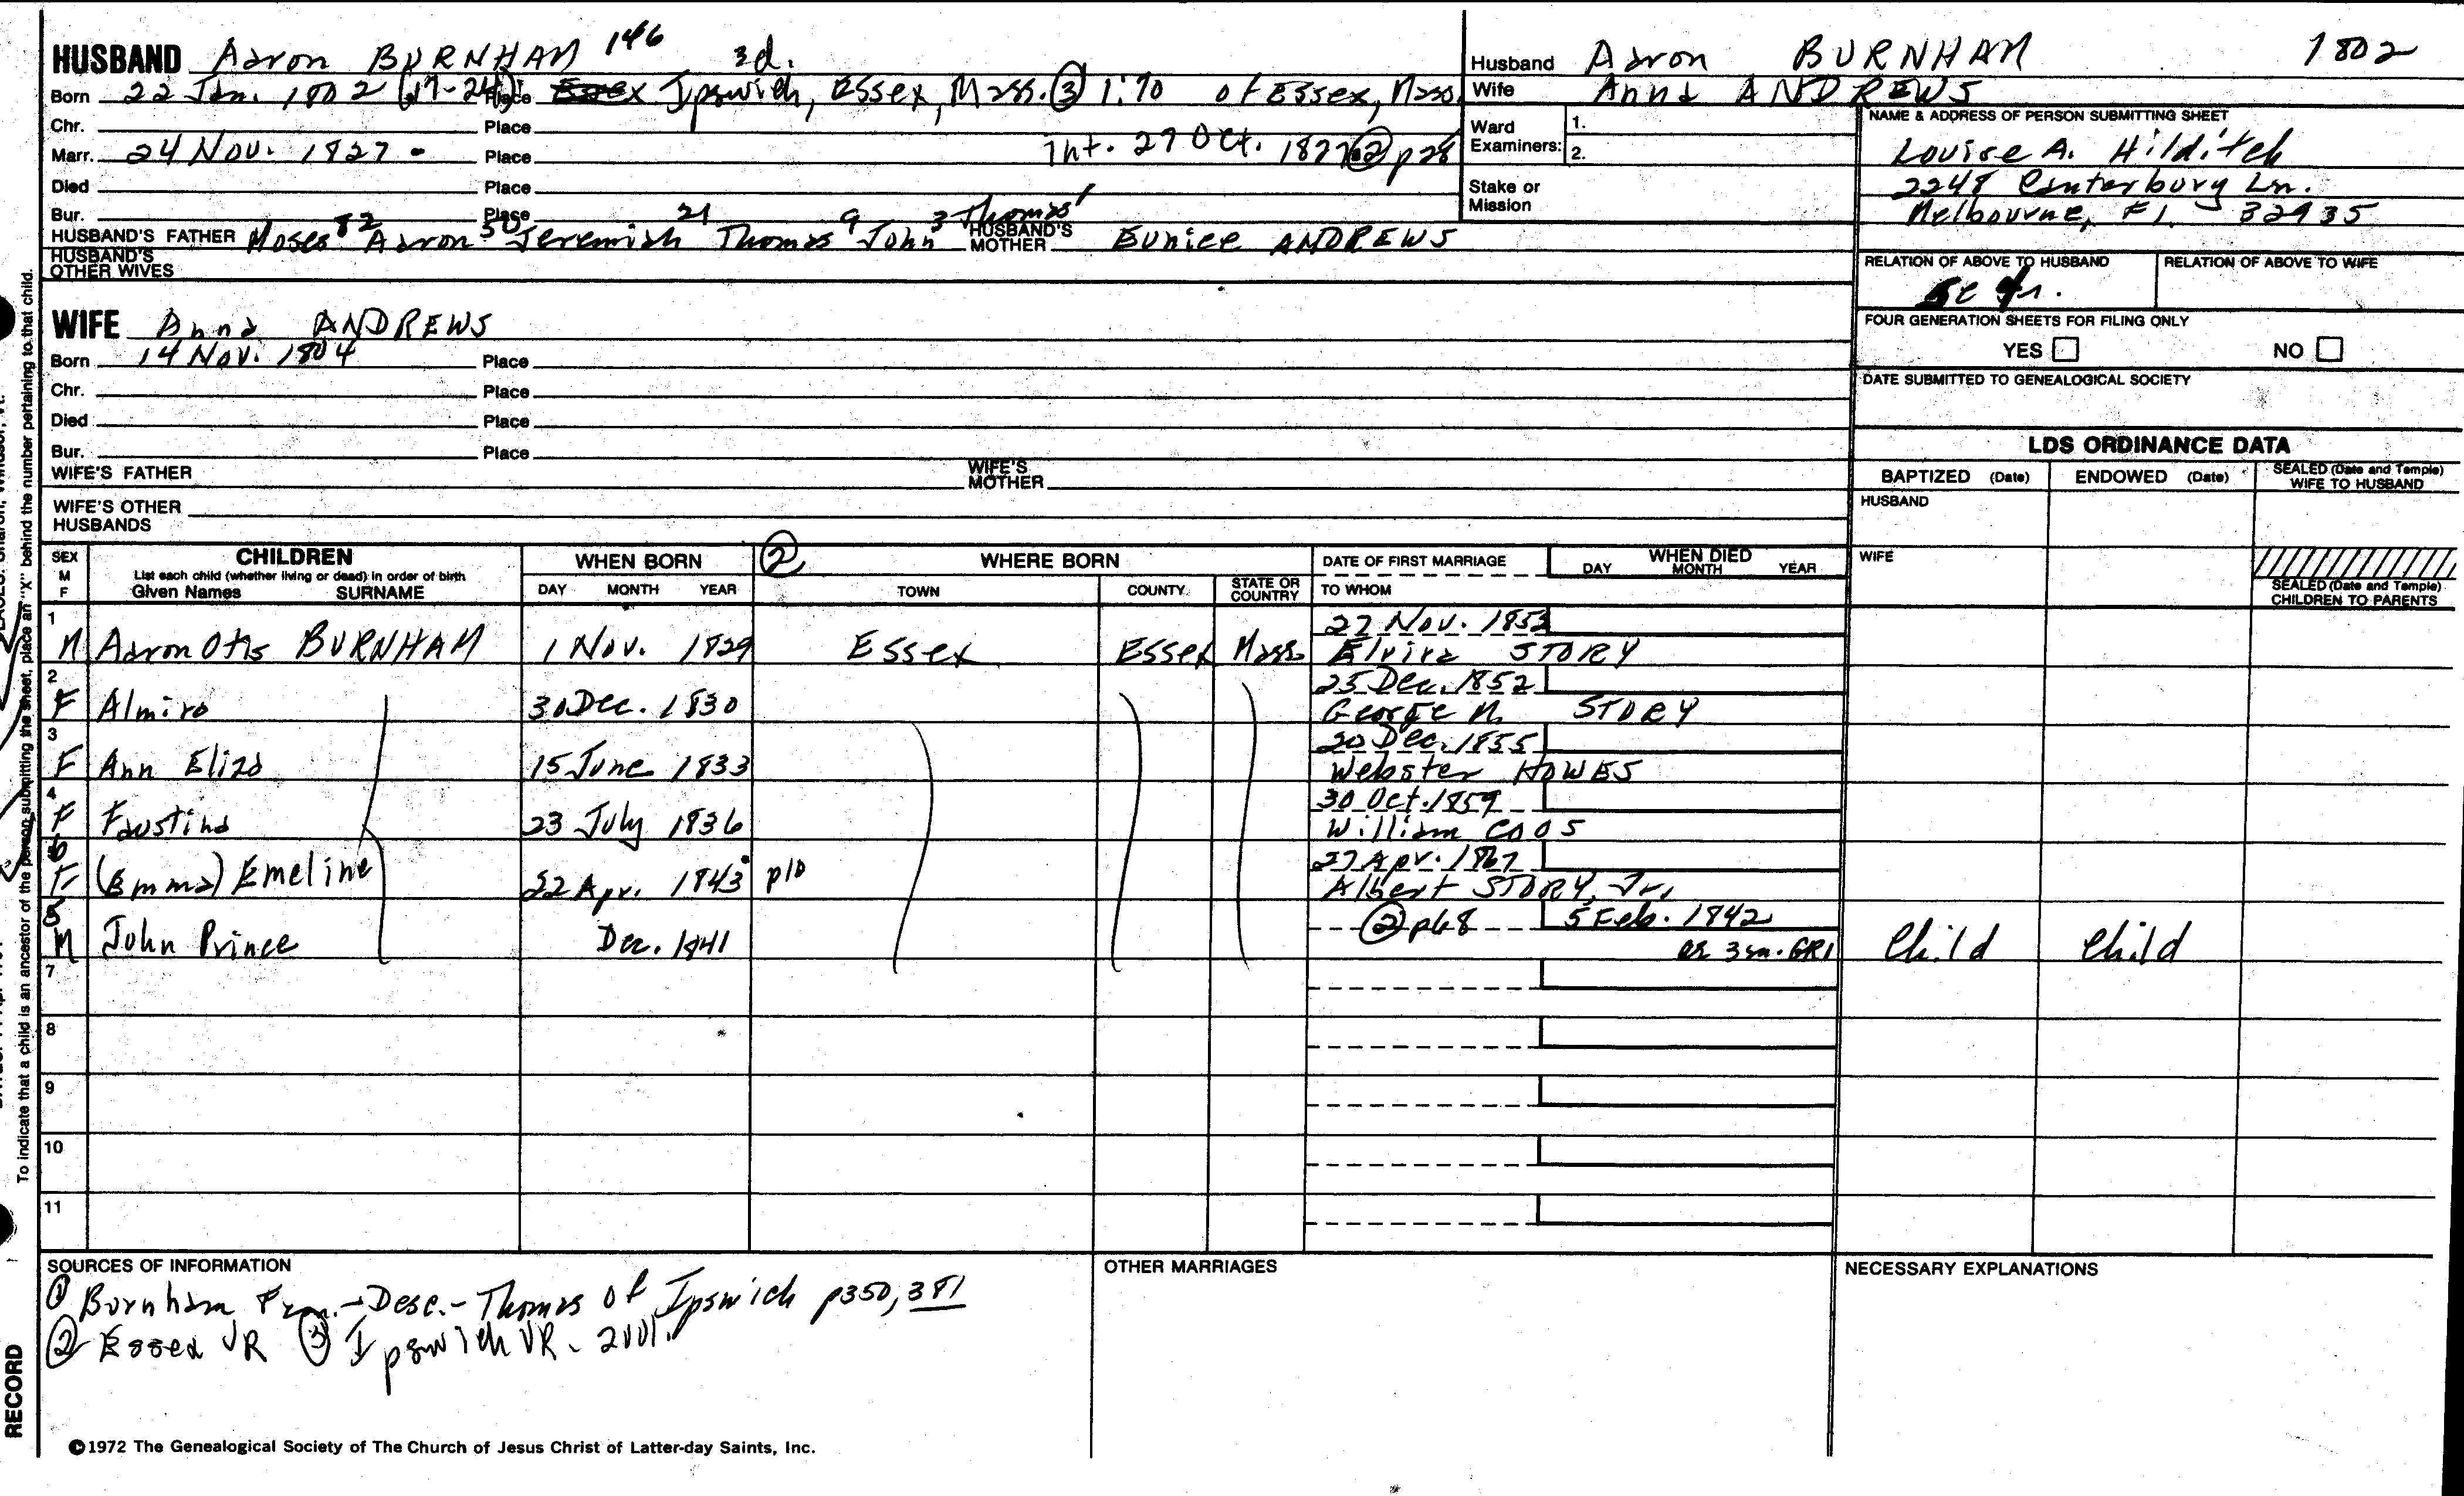 HUSBAND Aaron BURNHAM 146 3d.
Born 22 Jan. 1802 (17-24) Place Essex Ipswich, Essex, Mass. ③ 1:70 of Essex, Mass.
Chr. Place
Marr. 24 Nov. 1827 - Place int. 27 Oct. 1827 ② p28
Died Place
Bur. Place
HUSBAND'S FATHER Moses 82 Aaron 50 Jeremiah 21 Thomas 9 John 3 Thomas 1 HUSBAND'S MOTHER Eunice ANDREWS
HUSBAND'S OTHER WIVES
WIFE Anna ANDREWS
Born 14 Nov. 1804 Place
Chr. Place
Died Place
Bur. Place
WIFE'S FATHER WIFE'S MOTHER
WIFE'S OTHER HUSBANDS
Husband Aaron BURNHAM 1802
Wife Anna ANDREWS
Ward Examiners: 1.
2.
Stake or Mission
NAME & ADDRESS OF PERSON SUBMITTING SHEET
Louise A. Hilditch
2248 Canterbury Ln.
Melbourne, Fl. 32935
RELATION OF ABOVE TO HUSBAND RELATION OF ABOVE TO WIFE
FOUR GENERATION SHEETS FOR FILING ONLY
YES NO
DATE SUBMITTED TO GENEALOGICAL SOCIETY
LDS ORDINANCE DATA
BAPTIZED (Date) ENDOWED (Date) SEALED (Date and Temple) WIFE TO HUSBAND
HUSBAND
WIFE
SEALED (Date and Temple) CHILDREN TO PARENTS
SEX M F CHILDREN WHEN BORN ② WHERE BORN DATE OF FIRST MARRIAGE WHEN DIED
List each child (whether living or dead) in order of birth
Given Names SURNAME DAY MONTH YEAR TOWN COUNTY STATE OR COUNTRY TO WHOM DAY MONTH YEAR
1 27 Nov. 1853
M Aaron Otis BURNHAM 1 Nov. 1829 Essex Essex Mass. Elvira STORY
2 25 Dec. 1852
F Almira 30 Dec. 1830 George M. STORY
3 20 Dec. 1855
F Ann Eliza 15 June 1833 Webster HOWES
4 30 Oct. 1859
F Faustina 23 July 1836 William COOS
6 27 Apr. 1867
F (Emma) Emeline 22 Apr. 1843 p10 Albert STORY, Jr.
5 ② p68 5 Feb. 1842
M John Prince Dec. 1841 ae 3 m. GR1 Child Child
7
8
9
10
11
SOURCES OF INFORMATION
① Burnham Fam. - Desc. - Thomas of Ipswich p350, 381
② Essex VR ③ Ipswich VR
OTHER MARRIAGES
NECESSARY EXPLANATIONS
©1972 The Genealogical Society of The Church of Jesus Christ of Latter-day Saints, Inc.
To indicate that a child is an ancestor of the person submitting the sheet, place an "X" behind the number pertaining to that child.
RECORD